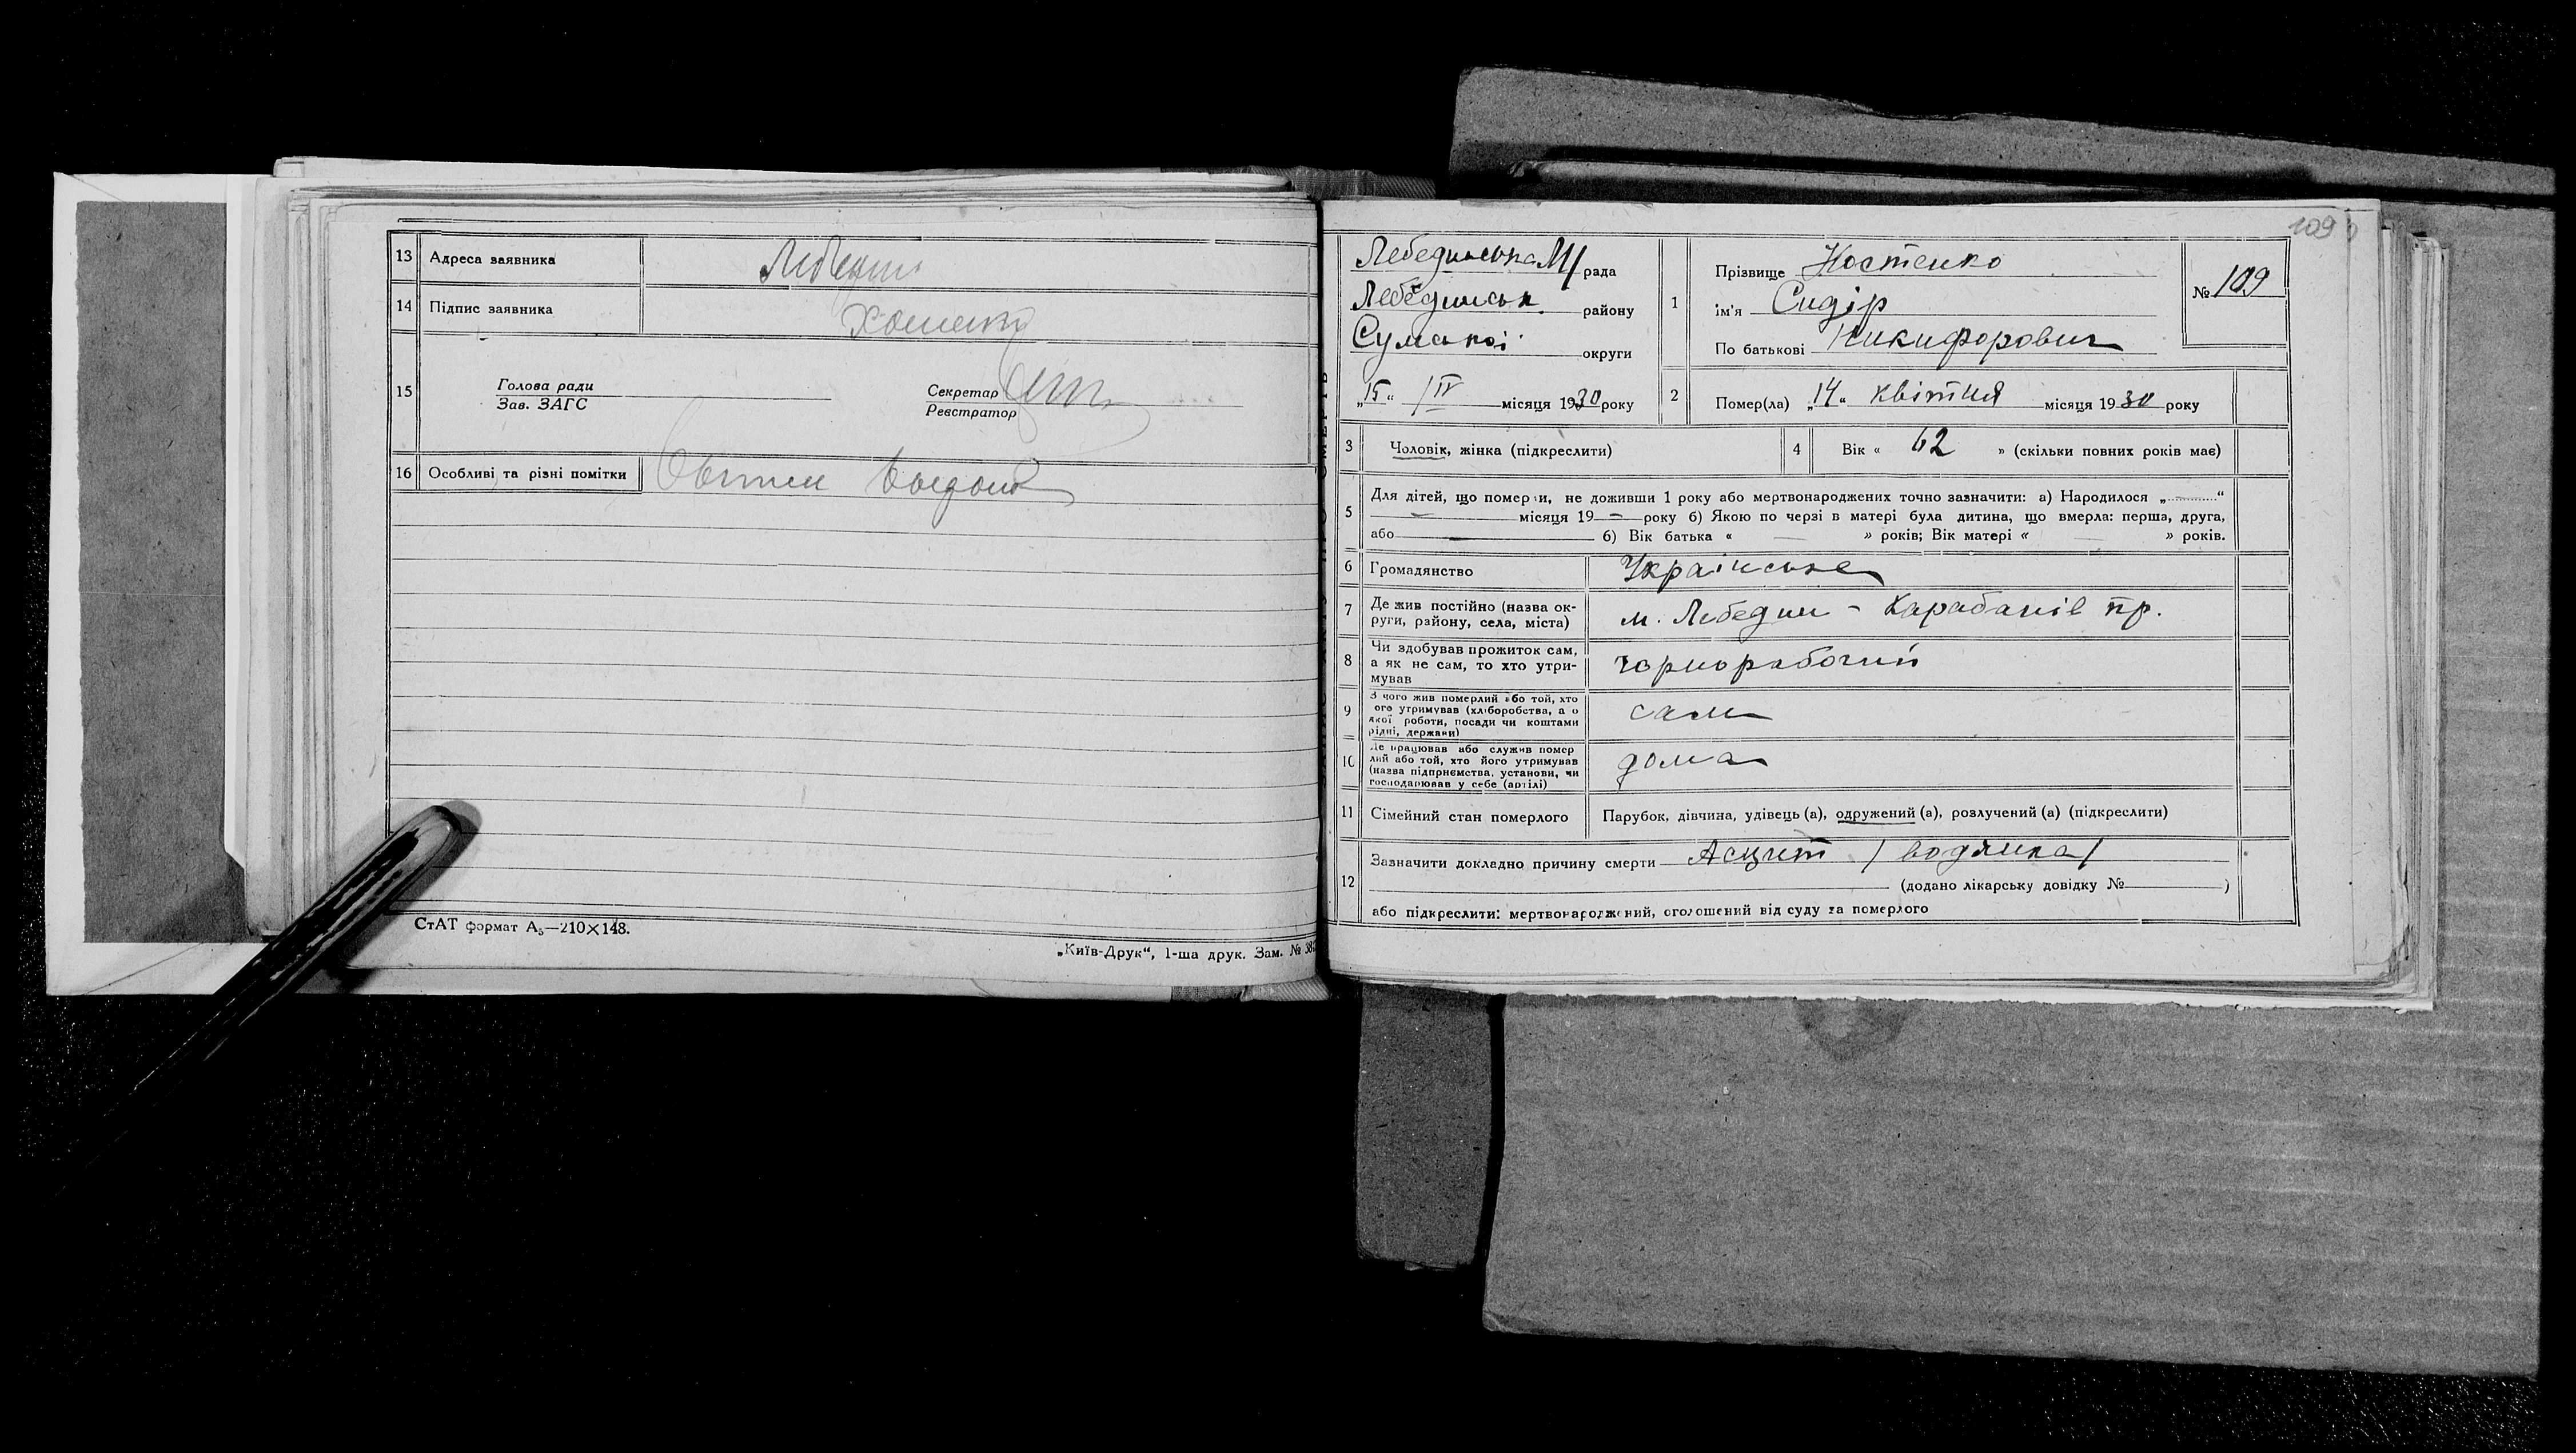 13 Адреса заявника Лебедин
14 Підпис заявника
15 Голова ради
Зав. ЗАГС
Секретар
Реєстратор
16 Особливі та різні помітки
СтАТ формат А₅—210×148.
„Київ-Друк“, 1-ша друк. Зам. № 382
109
Лебединська М/рада
Лебединськ. району
Сумської округи
„15“ /IV місяця 1930 року
1 Прізвище Костенко
ім'я Сидір
По батькові Никифорович
№ 109
2 Помер(ла) „14“ квітня місяця 1930 року
3 Чоловік, жінка (підкреслити)
4 Вік « 62 » (скільки повних років має)
5 Для дітей, що померли, не доживши 1 року або мертвонароджених точно зазначити: а) Народилося „ — “
— місяця 19 — року б) Якою по черзі в матері була дитина, що вмерла: перша, друга,
або — б) Вік батька « — » років; Вік матері « — » років.
6 Громадянство Українське
7 Де жив постійно (назва ок-
руги, району, села, міста) м. Лебедин - Карабанів пр.
8 Чи здобував прожиток сам,
а як не сам, то хто утри-
мував чорноробочий
9 З чого жив померлий або той, хто
ого утримував (хліборобства, а о
якої роботи, посади чи коштами
рідні, держави) сам
10 Де працював або служив помер
лий або той, хто його утримував
(назва підприємства, установи, чи
господарював у себе (артілі) дома
11 Сімейний стан померлого Парубок, дівчина, удівець (а), одружений (а), розлучений (а) (підкреслити)
12 Зазначити докладно причину смерти Асцит /водянка/
(додано лікарську довідку № )
або підкреслити: мертвонароджений, оголошений від суду за померлого